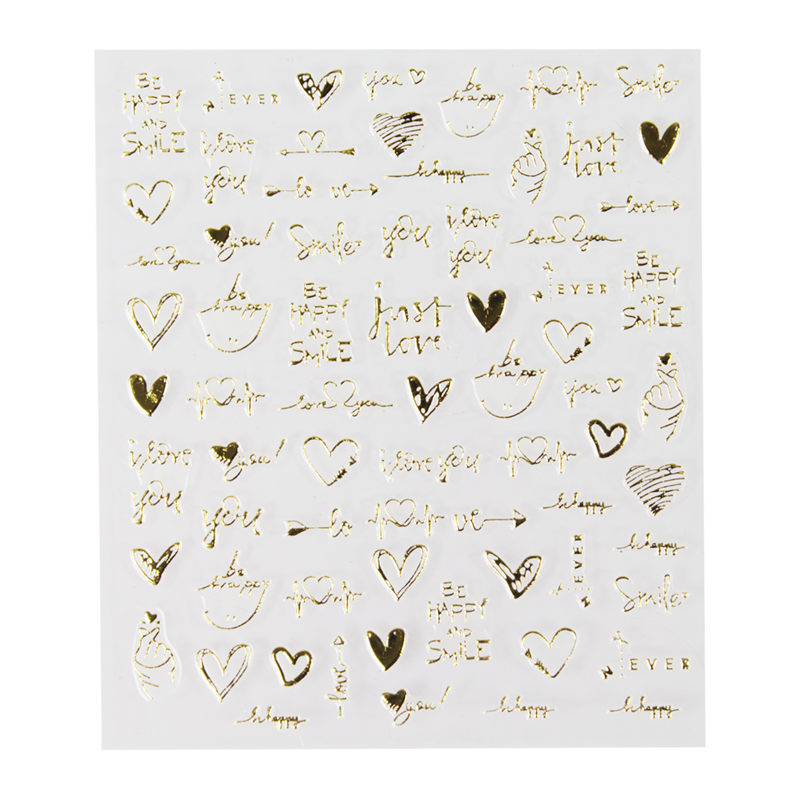 BE
HAPPY
AND
SMILE
N EVER
you
be
happy
Smile
i love
you
just
love
be happy
lo ve
love
love 2 you
you!
Smile
you
i love
you
love 2 you
N EVER
BE
HAPPY
AND
SMILE
be
happy
BE
HAPPY
AND
SMILE
just
love
be
happy
you
love 2 you
i love
you
you!
i love you
be happy
you
lo ve
be happy
be
happy
N EVER
Smile
BE
HAPPY
AND
SMILE
N EVER
love
be happy
you!
be happy
be happy